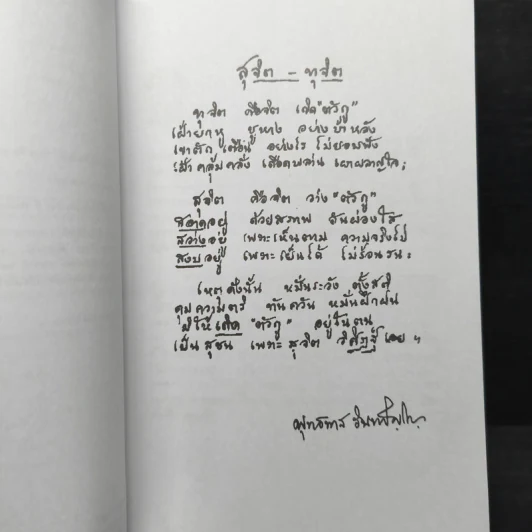 สุจิต – ทุจิต
ทุจิต คือจิต เกิด "ตัวกู"
เฝ้ายกหู ชูหาง อย่างบ้าหลัง
เขาตัก เตือน อย่างไร ไม่ยอมฟัง
เฝ้าคลุ้มคลั่ง เดือดพล่าน เผาผลาญใจ ;
สุจิต คือจิต ว่าง "ตัวกู"
สอาดอยู่ ด้วยสภาพ อันผ่องใส
สว่างอยู่ เพราะเห็นตาม ความจริงไป
สงบอยู่ เพราะเย็นได้ ไม่ร้อนรน :
เหตุดังนั้น หมั่นระวัง ตั้งสติ
คุมความ ทันควัน หมั่นฝึกฝน
มิให้เกิด "ตัวกู" อยู่ในตน
เป็นสุชน เพราะ สุจิต วิศิษฏ์ เอย ฯ
พุทธทาส อินทปัญโญ